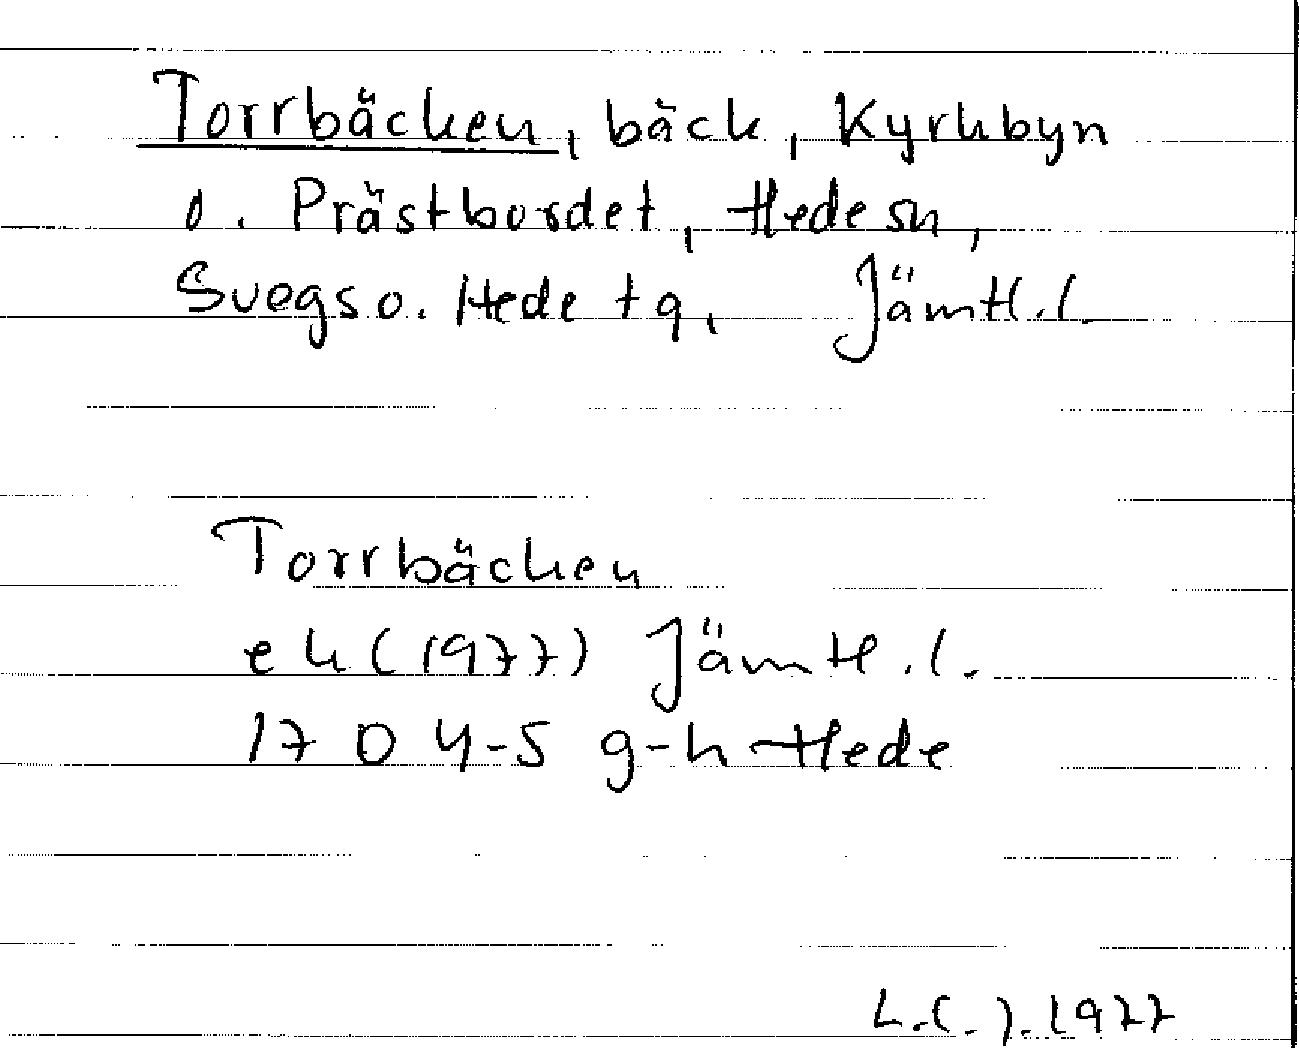 Torrbäcken, bäck, Kyrkbyn
o. Prästbordet, Hede sn,
Svegs o. Hede tg, Jämtl.l.
Torrbäcken
ek (1977) Jämtl.l.
17 D 4-5 g-h Hede
1977